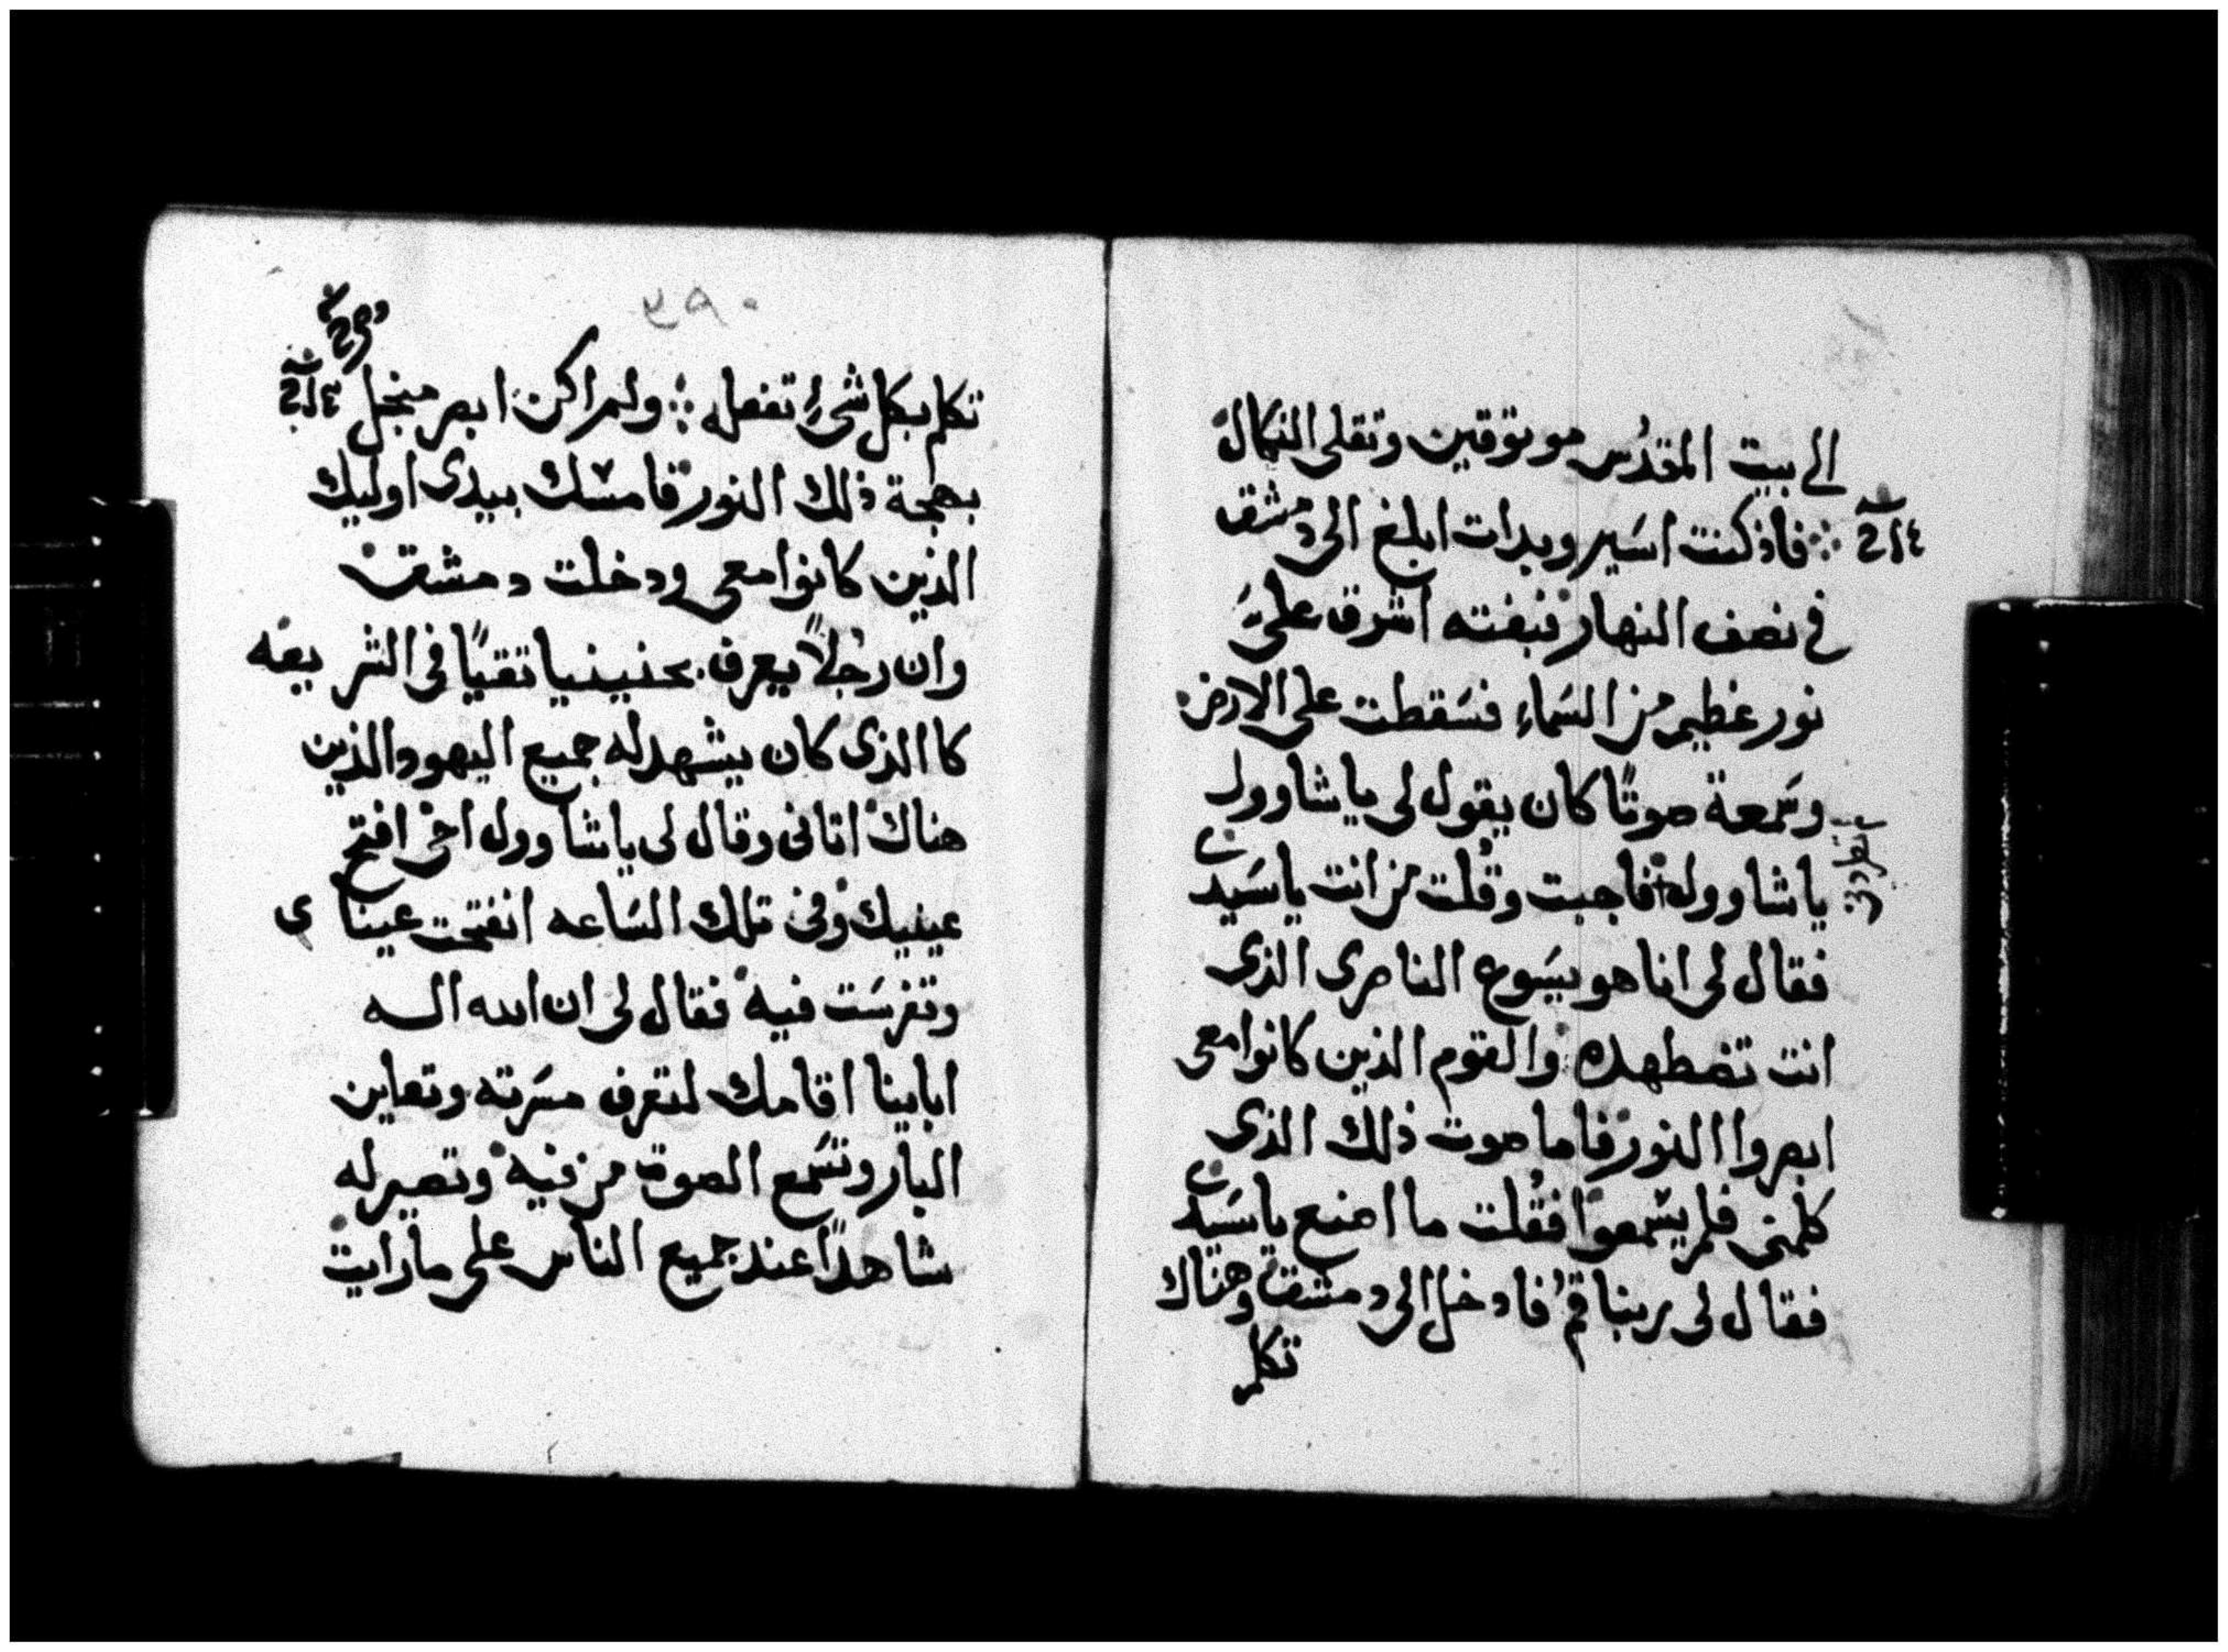 الى بيت المقدس موتوقين وتقلى النكال
فاذ كنت اسير وبدات ابلغ الى دمشق
فى نصف النهار فبغته اشرق علىّ
نور عظيم من السماء فسَقطت على الارض
وسَمعة صوتًا كان يقول لى يا شاوول
يا شاوول فاجبت وقُلت من انت يا سَيدى
فقال لى انا هو يسَوع الناصرى الذى
انت تضطهده والقوم الذين كانوا معى
ابصروا النور فاما صوت ذلك الذى
كلمنى فلم يسَمعوا فقُلت ما اصنع يا سَيدى
فقال لى ربنا قُم فادخل الى دمشق وهناك
تكلم
٣٩٠
تكلم بكل شىءٍ تفعله ولم اكن ابصر من اجل
بهجة ذلك النور فامسَك بيدى اوليك
الذين كانوا معى ودخلت دمشق
وان رجُلاً يعرف بحنينيا تقيًا فى الشريعه
كا الذى كان يشهد له جميع اليهود الذين
هناك اتانى وقال لى يا شاوول اخى افتح
عينيك وفى تلك السَاعه انفتحت عيناى
وتفرسَت فيه فقال لى ان الله اله
ابابينا اقامك لتعرف مسَرته وتعاين
البار وتسَمع الصوت من فيه وتصير له
شاهدًا عند جميع الناس على ما رايت